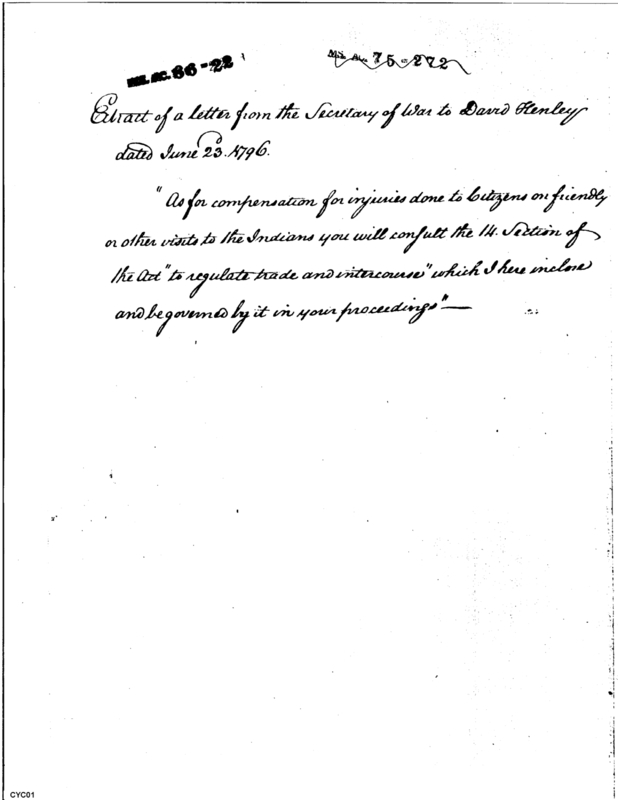 MS. AC. 86-22
MS. Ac. 75-272
Extract of a letter from the Secretary of War to David Henley
dated June 23d. 1796.
"As for compensation for injuries done to Citizens on friendly
or other visits to the Indians you will consult the 14. Section of
the Act "to regulate trade and intercourse" which I here inclose
and be governed by it in your proceedings" —
CYC01